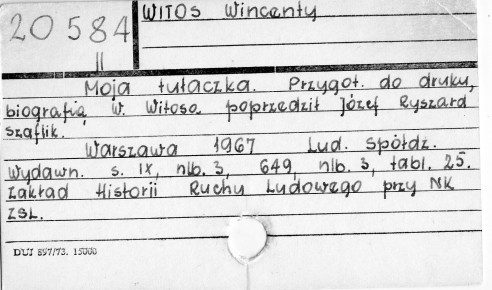 20 584
II
WITOS Wincenty
Moja tułaczka. Przygot. do druku,
biografią W. Witosa poprzedził Józef Ryszard
Szaflik.
Warszawa 1967 Lud. Spółdz.
Wydawn. s. IX, nlb. 3, 649, nlb. 3, tabl. 25.
Zakład Historii Ruchu Ludowego przy NK
ZSL.
DUJ 897/73. 15000